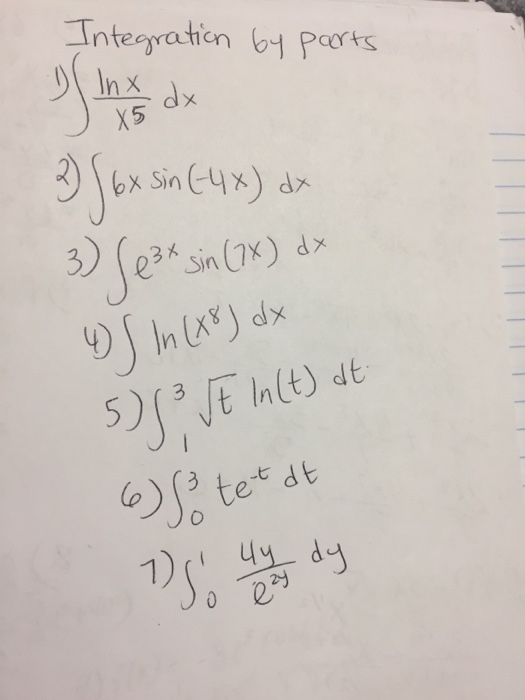 Integration by parts
1) ∫ ln x / x5 dx
2) ∫ 6x sin(-4x) dx
3) ∫ e^3x sin(7x) dx
4) ∫ ln(x^8) dx
5) ∫_1^3 √t ln(t) dt
6) ∫_0^3 te^-t dt
7) ∫_0^1 4y / e^2y dy